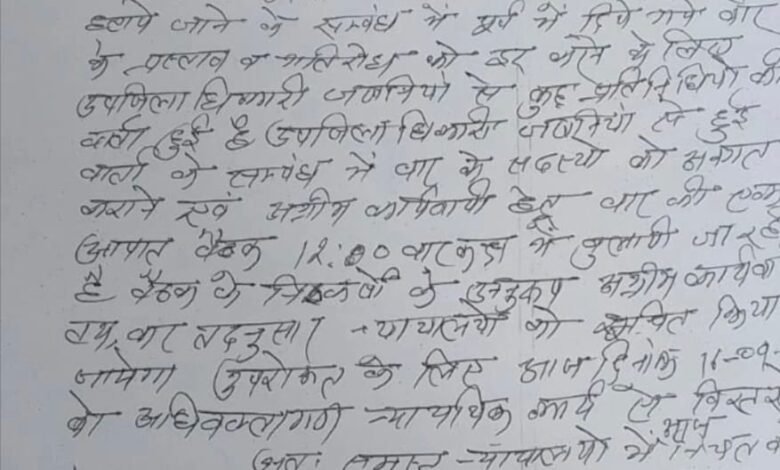 हटाये जाने के सम्बंध में पूर्व में दिये गये बार
के प्रस्ताव व गतिरोध को दूर करने के लिए
उपजिलाधिकारी जखनियां से कुछ प्रतिनिधियो की
वार्ता हुई है उपजिलाधिकारी जखनियां से हुई
वार्ता के सम्बंध में बार के सदस्यो को अवगत
कराने एवं अग्रीम कार्यवाही हेतु बार की एक
आपात बैठक 12:00 बार कक्ष में बुलायी जा रही
है बैठक के निष्कर्षो के अनुरूप अग्रीम कार्यवा
तय कर तद्नुसार न्यायालयों को सूचित किया
जायेगा उपरोक्त के लिए आज दिनांक 16-09-
को अधिवक्तागण न्यायिक कार्य से विरत र
अतः समस्त न्यायालयो में आज नियत